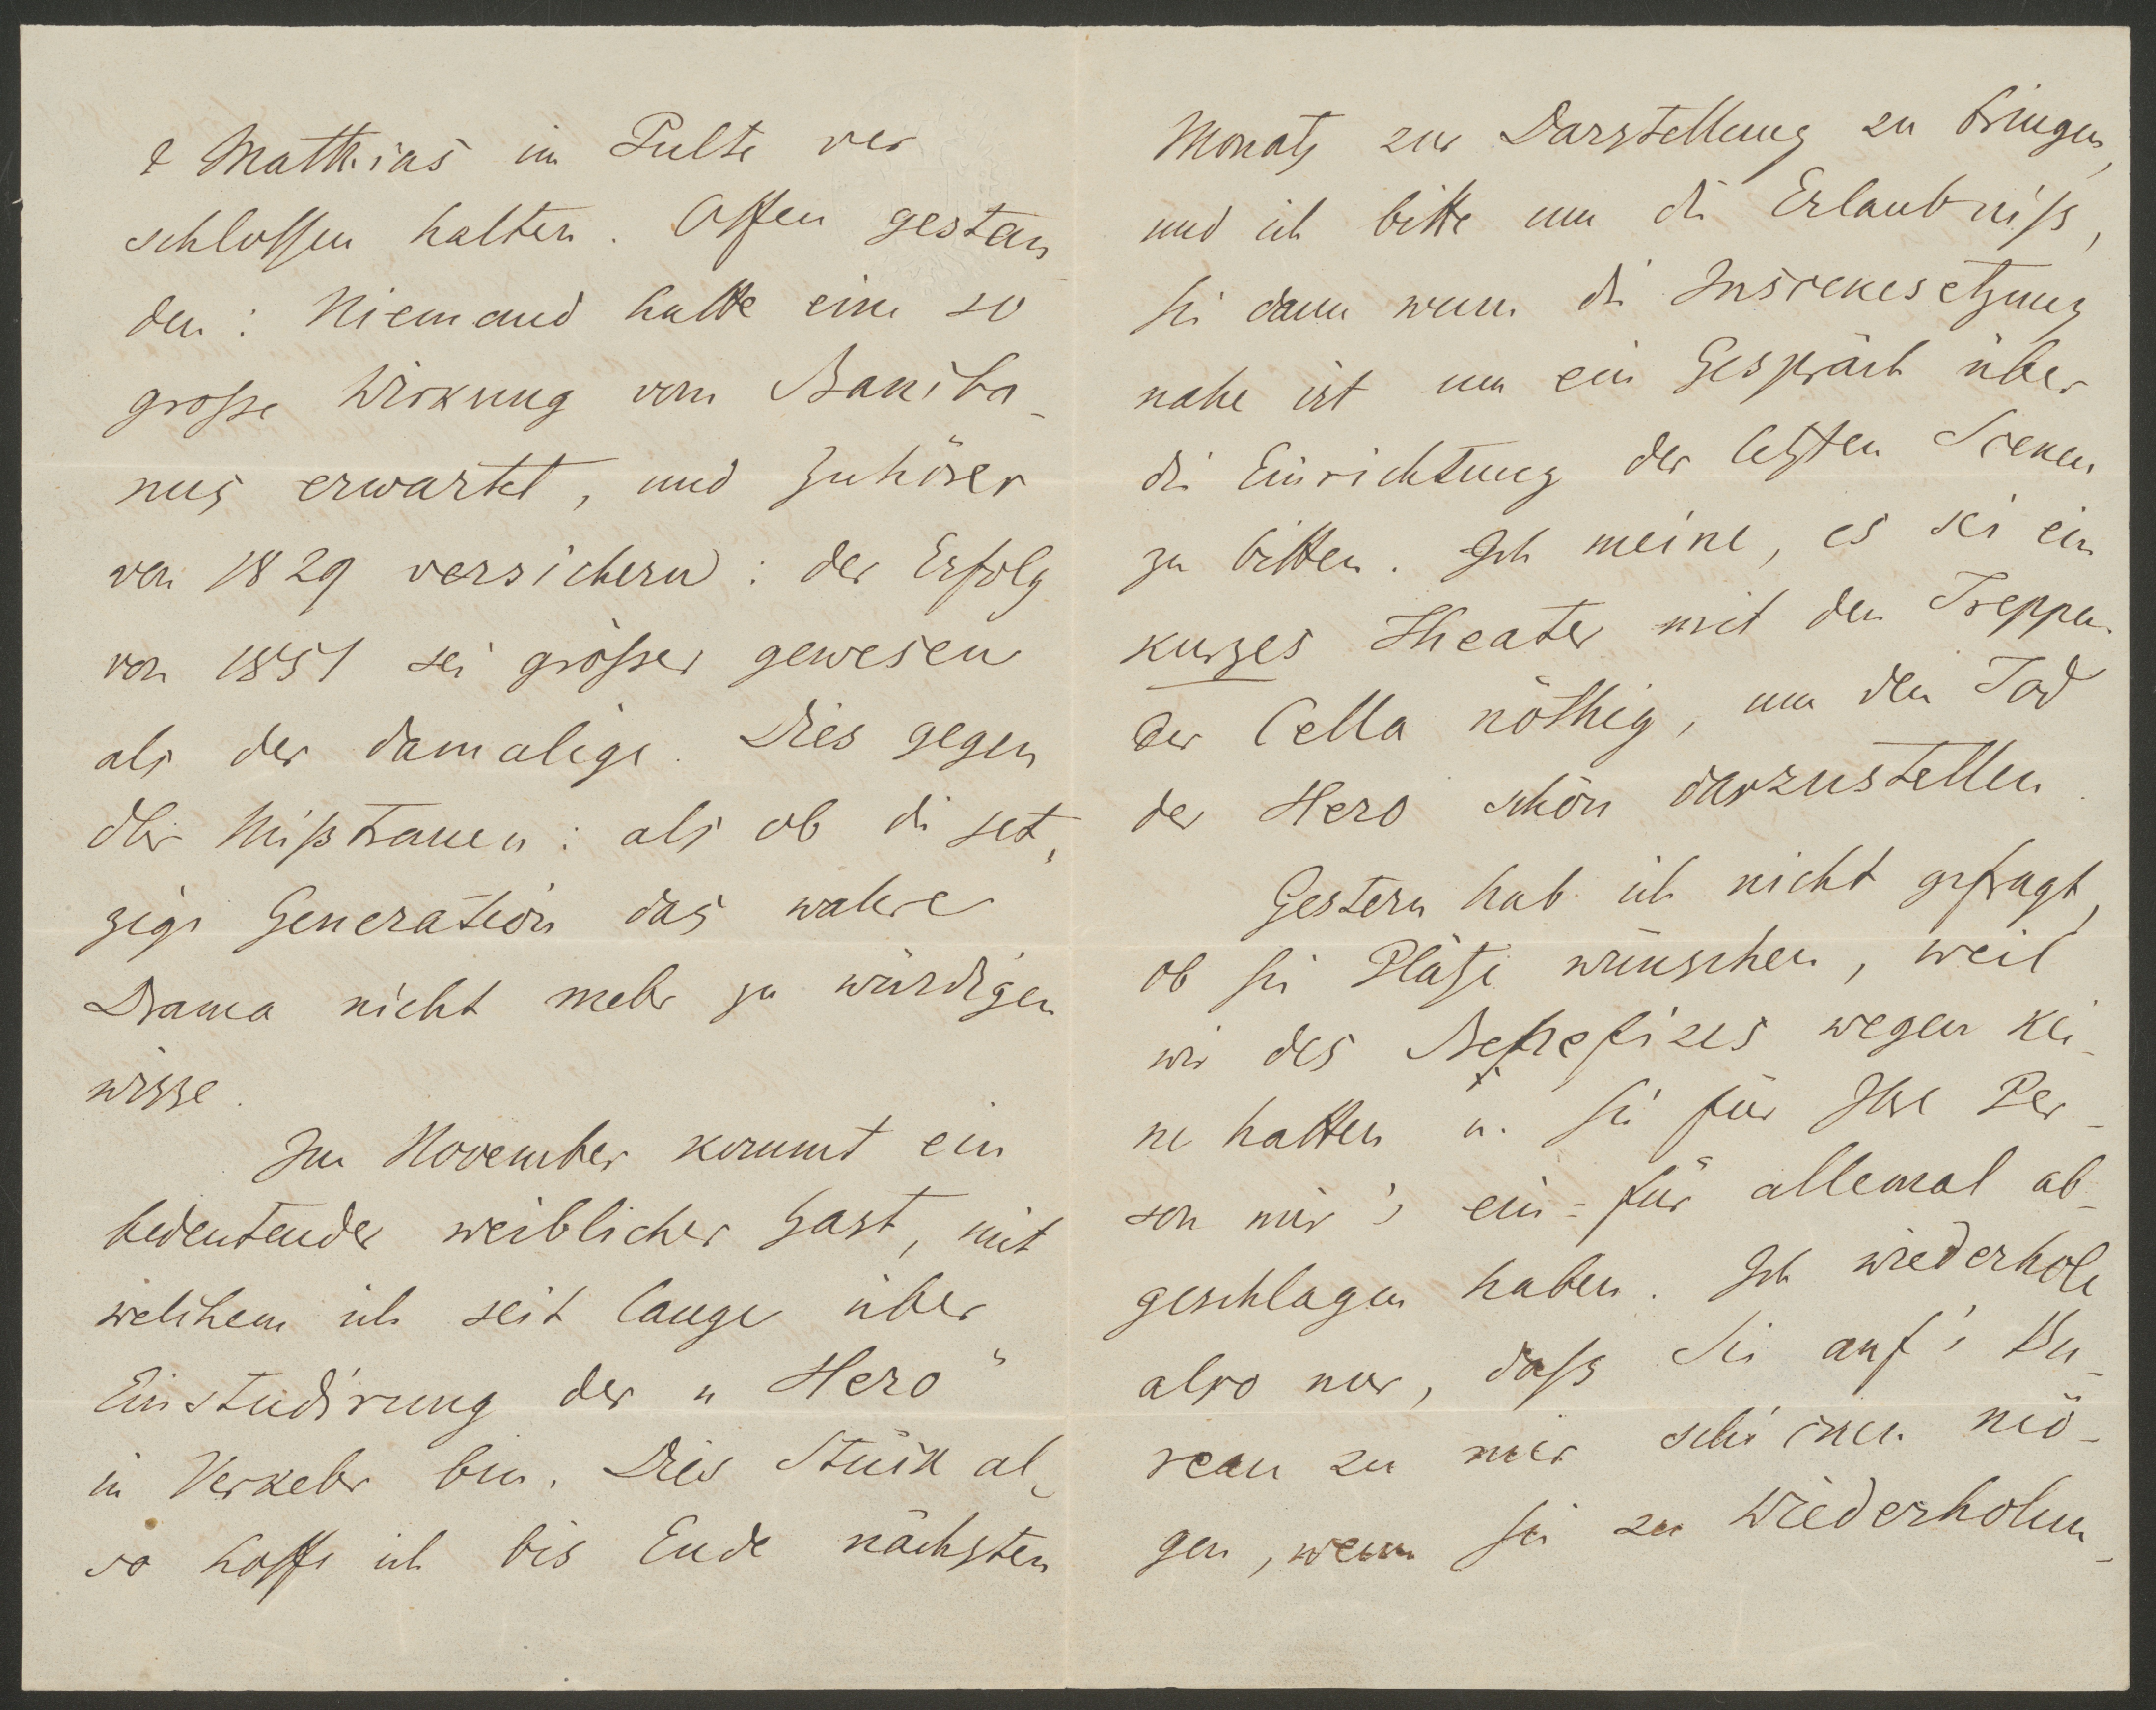 & Matthias im Pulte ver
schlossen halten. Offen gestan
den: Niemand hatte eine so
große Wirkung vom Bankba-
nus erwartet, und Zuhörer
von 1829 versichern: der Erfolg
von 1851 sei größer gewesen
als der damalige. Dies gegen
Ihr Mißtrauen: als ob die jet-
zige Generation das wahre
Drama nicht mehr zu würdigen
wisse.
Im November kommt ein
bedeutender weiblicher Gast, mit
welchem ich seit lange über
Einstudirung der „Hero"
in Verkehr bin. Dies Stück al-
so hoffe ich bis Ende nächsten
Monats zur Darstellung zu bringen,
und ich bitte um die Erlaubniß,
Sie dann wenn die Inscenesetzung
nahe ist um ein Gespräch über
die Einrichtung der letzten Scenen
zu bitten. Ich meine, es sei ein
kurzes Theater mit den Treppen
der Cella nöthig, um den Tod
der Hero schön darzustellen.
Gestern hab ich nicht gefragt,
ob Sie Plätze wünschen, weil
wir des Benefizes wegen kei-
ne hatten u. Sie für Ihre Per-
son mir's ein-für allemal ab-
geschlagen haben. Ich wiederhole
also nur, daß Sie auf's Bu-
reau zu mir schicken mö-
gen, wenn Sie zu Wiederholun-